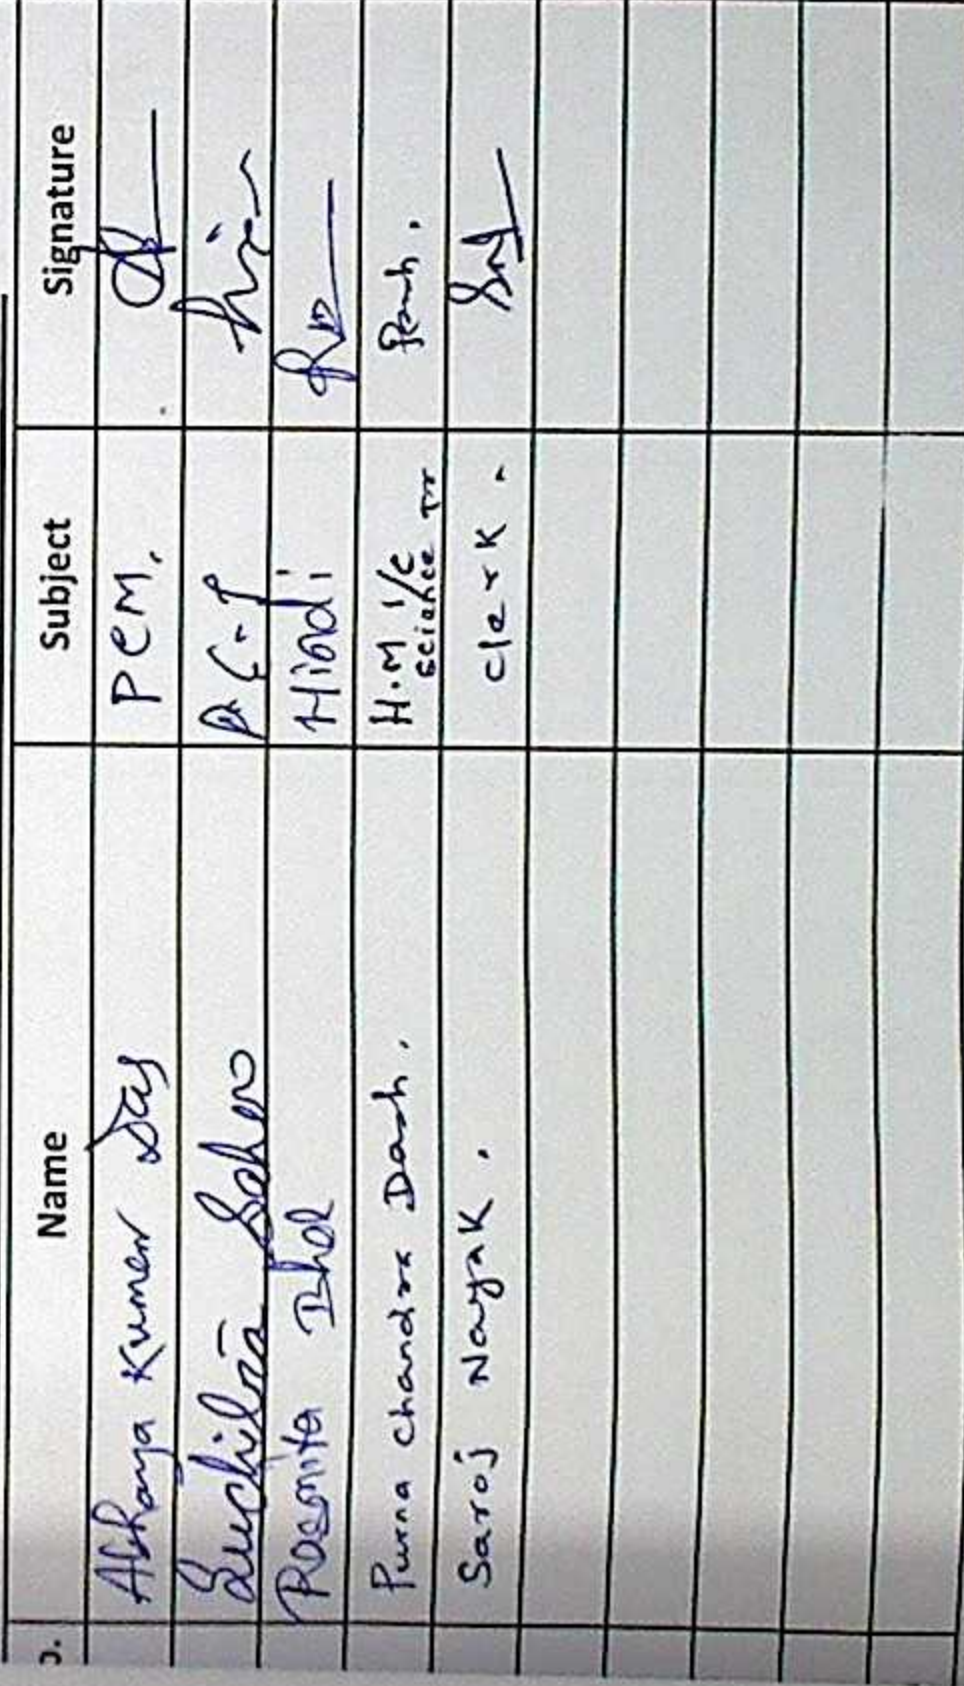 Name Subject Signature
Abhaya Kumar Das PCM.
Suchitra Sahoo
Rasmita Dhal Hindi
Purna Chandra Dash. H.M I/C
Science Tr
Saroj Nayak. Clerk.